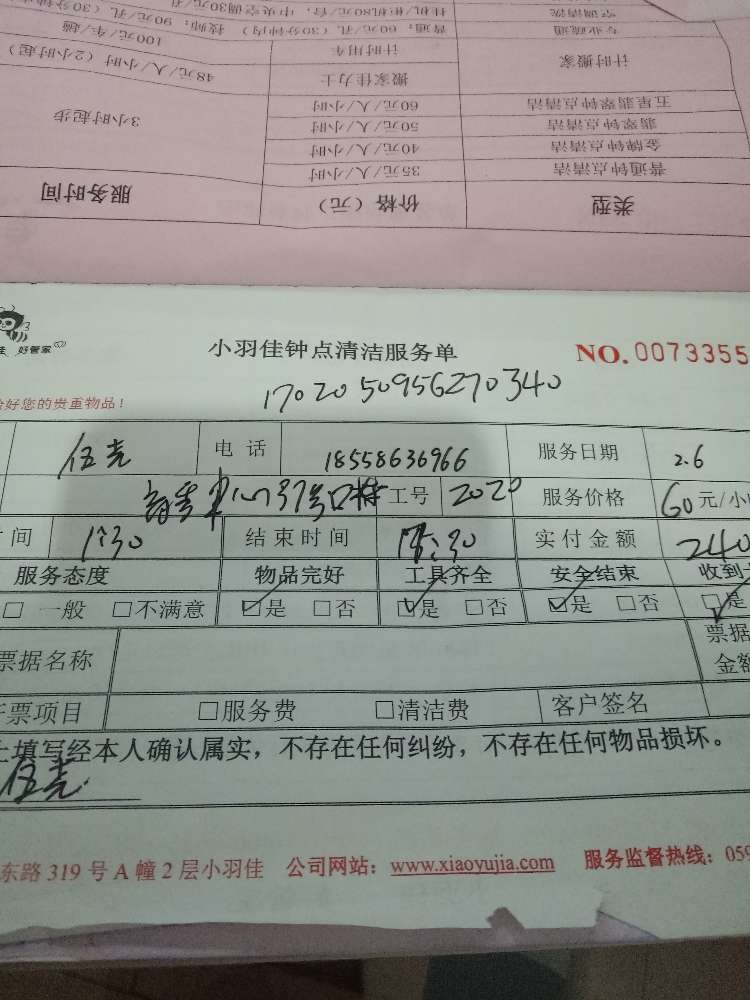 挂机/柜机80元/台，中央空调30元/
空调清洗
专业疏通 普通：60元/孔（30分钟内） 技师：90元/孔
计时搬家 计时用车 100元/车/趟
搬家佳力士 48元/人/小时（2小时起）
五星翡翠钟点清洁 60元/人/小时 3小时起步
翡翠钟点清洁 50元/人/小时
金牌钟点清洁 40元/人/小时
普通钟点清洁 35元/人/小时
类型 价格（元） 服务时间
佳 好管家
小羽佳钟点清洁服务单 NO.0073355
17020 50956270340
好您的贵重物品！
电话 18558636966 服务日期 2.6
工号 2020 服务价格 60元/小
时间 1:30 结束时间 :30 实付金额 240
服务态度 物品完好 工具齐全 安全结束 收到
□一般 □不满意 ☑是 □否 ☑是 □否 ☑是 □否 ☑是
票据名称 票据
金额
票项目 □服务费 □清洁费 客户签名
上填写经本人确认属实，不存在任何纠纷，不存在任何物品损坏。
东路319号A幢2层小羽佳 公司网站：www.xiaoyujia.com 服务监督热线：059